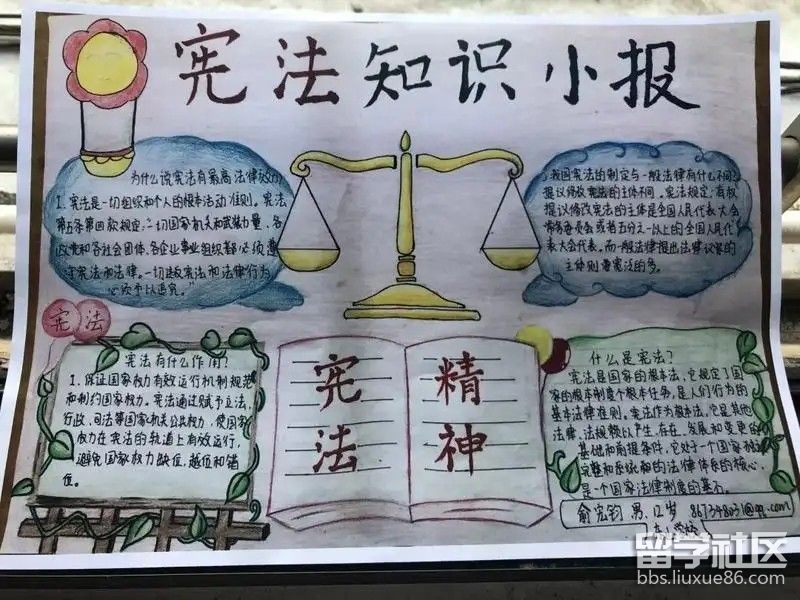 宪法知识小报
为什么说宪法有最高法律效力
1、宪法是一切组织和个人的根本活动准则。宪法
第五条第四款规定:一切国家机关和武装力量、各
政党和各社会团体、各企业事业组织都必须遵
守宪法和法律。一切违反宪法和法律行为
必须予以追究。"
我国宪法的制定与一般法律有什么不同?
提议修改宪法的主体不同。宪法规定:有权
提议修改宪法的主体是全国人民代表大会
常务委员会或者五分之一以上的全国人民代
表大会代表。而一般法律提出法律议案的
主体则要宽泛的多。
宪法
宪法有什么作用?
1、保证国家权力有效运行机制规范
和制约国家权力。宪法通过赋予立法、
行政、司法等国家机关公共权力,使国家
权力在宪法的轨道上有效运行,
避免国家权力缺位,越位和错
位。
宪法
精神
什么是宪法?
宪法是国家的根本法,它规定了国
家的根本制度个根本任务,是人们行为的
基本法律准则。宪法作为根本法,它是其他
法律、法规赖以产生、存在、发展和变更的
基础和前提条件,它处于一个国家
完整和系统和的法律体系的核心,
是一个国家法律制度的基石。
俞宏钧 男.12岁 867348031@qq.com
留学社区
bbs.liuxue86.com